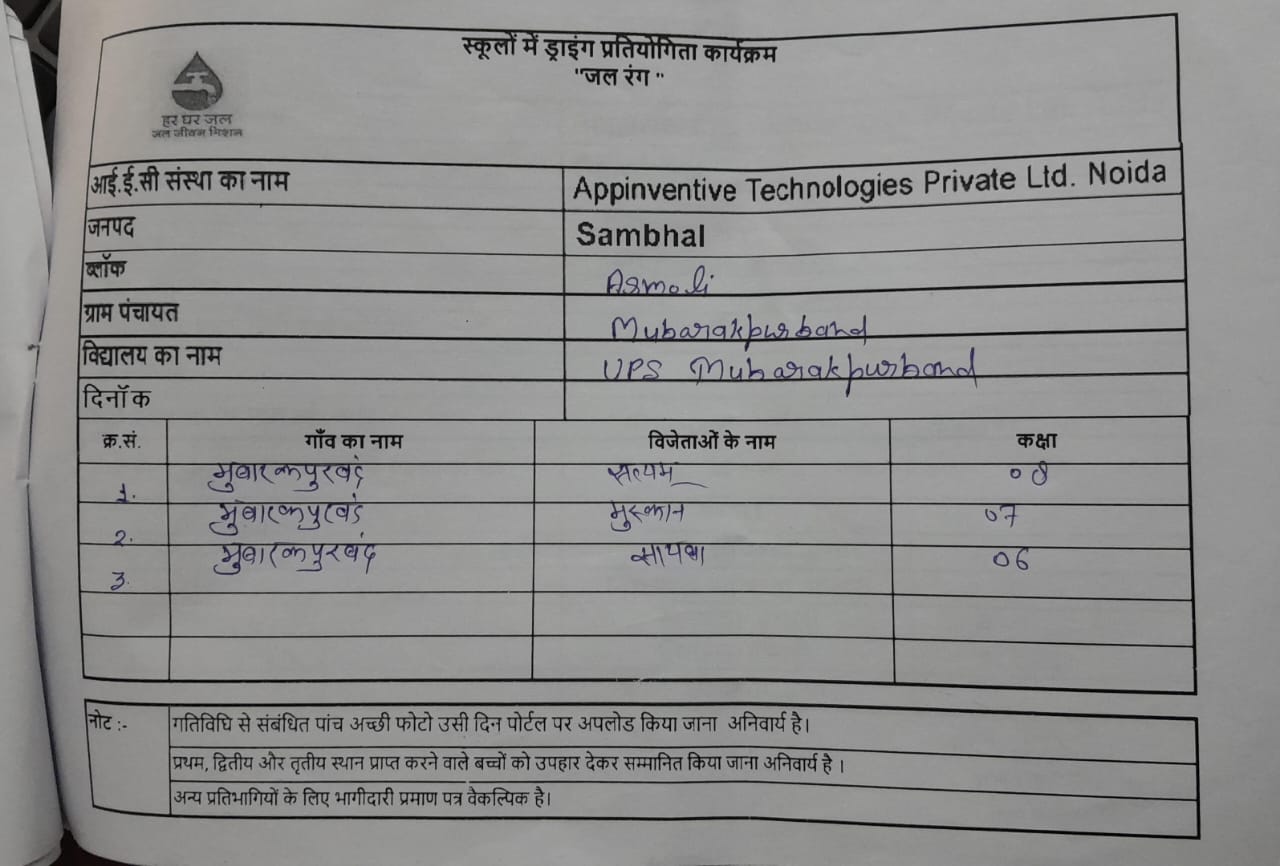 स्कूलों में ड्राइंग प्रतियोगिता कार्यक्रम
"जल रंग "
हर घर जल
जल जीवन मिशन
आई.ई.सी संस्था का नाम Appinventive Technologies Private Ltd. Noida
जनपद Sambhal
ब्लॉक Asmoli
ग्राम पंचायत Mubarakpurband
विद्यालय का नाम UPS Mubarakpurband
दिनॉक
क्र.सं. गाँव का नाम विजेताओं के नाम कक्षा
1. मुबारकपुरबंद सत्यम 08
2. मुबारकपुरबंद मुस्कान 07
3. मुबारकपुरबंद 06
नोट :- गतिविधि से संबंधित पांच अच्छी फोटो उसी दिन पोर्टल पर अपलोड किया जाना अनिवार्य है।
प्रथम, द्वितीय और तृतीय स्थान प्राप्त करने वाले बच्चों को उपहार देकर सम्मानित किया जाना अनिवार्य है ।
अन्य प्रतिभागियों के लिए भागीदारी प्रमाण पत्र वैकल्पिक है।